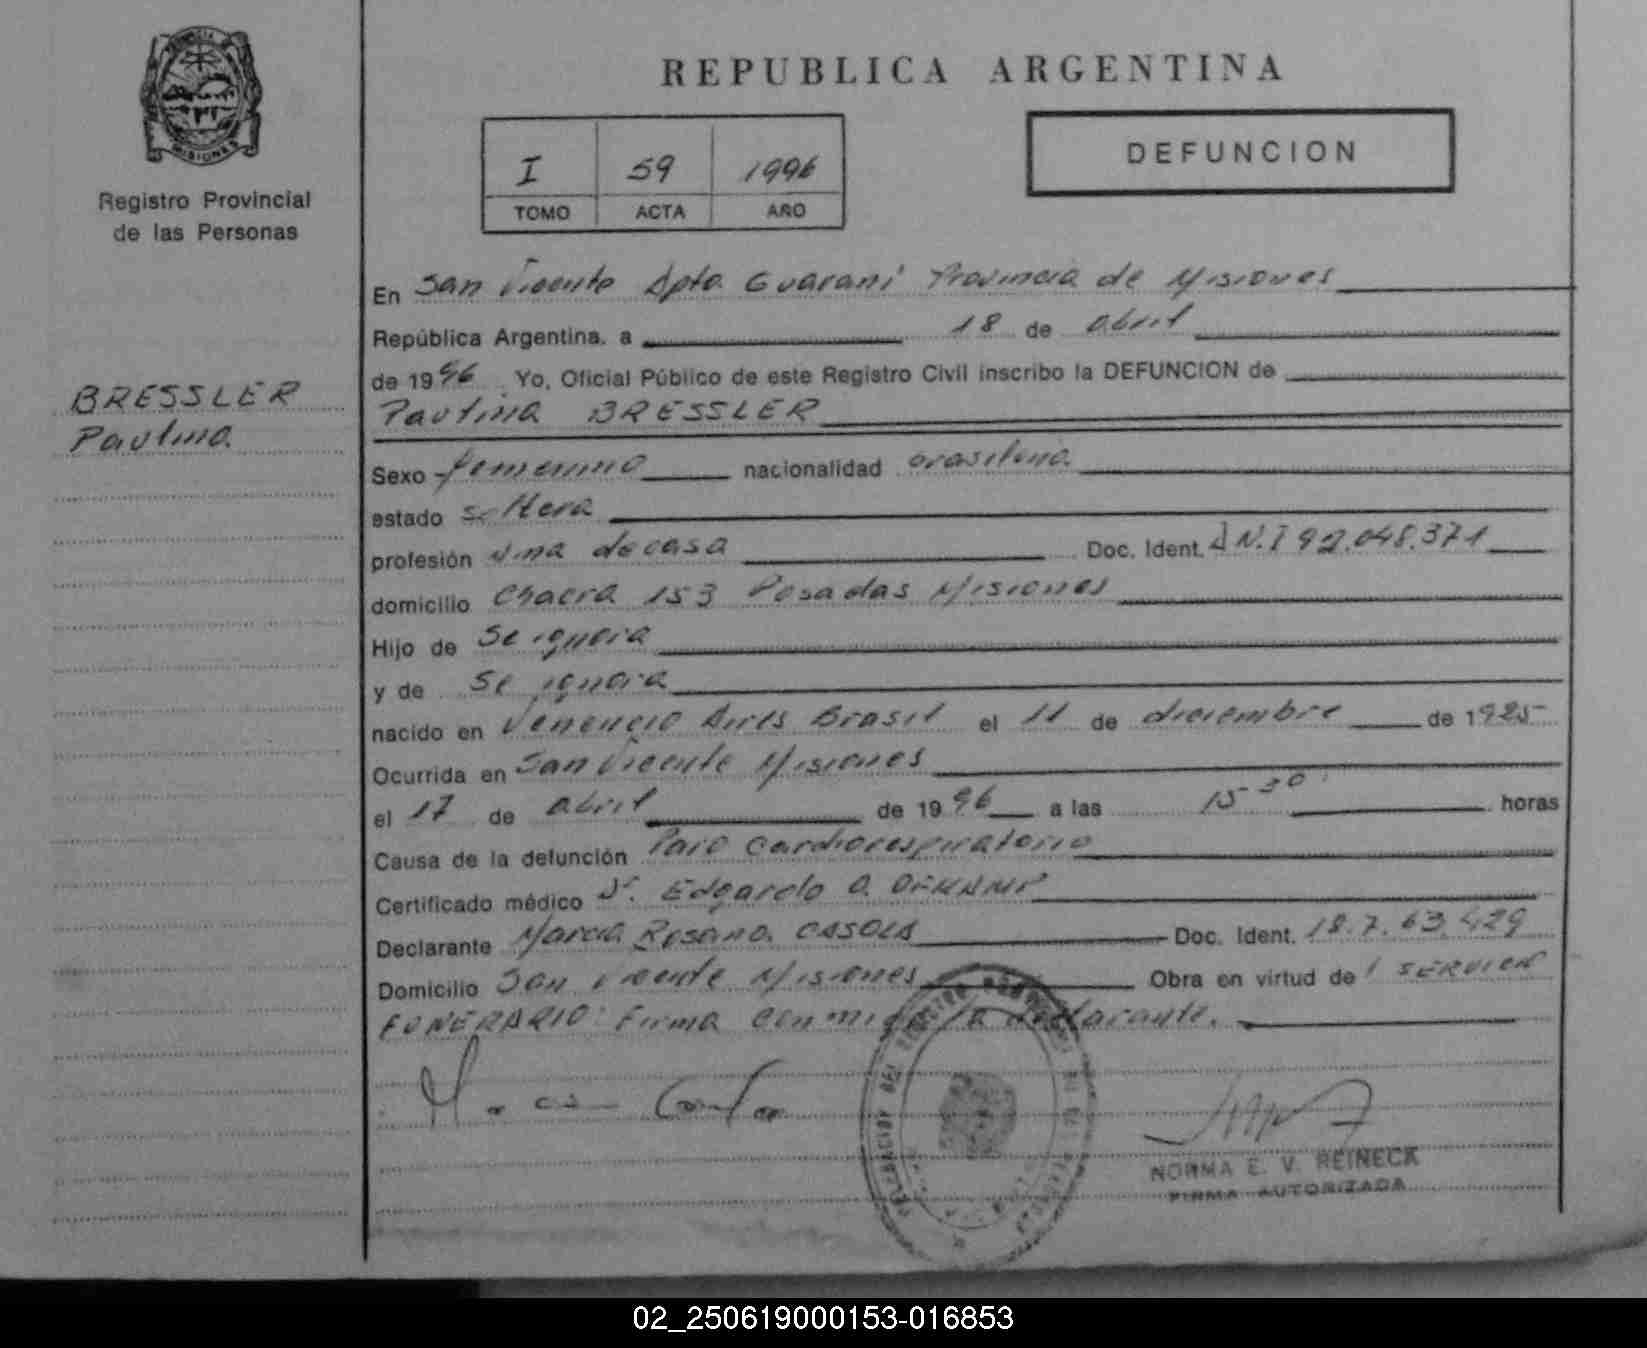 PROVINCIA DE
MISIONES
Registro Provincial
de las Personas
BRESSLER
Paulina
REPUBLICA ARGENTINA
I 59 1996
TOMO ACTA AÑO
DEFUNCION
En San Vicente Dpto Guarani Provincia de Misiones
República Argentina, a 18 de abril
de 1996 Yo, Oficial Público de este Registro Civil inscribo la DEFUNCION de
Paulina BRESSLER
Sexo femenino nacionalidad brasilena
estado soltera
profesión Ama de casa Doc. Ident. D.N.I 92.048.371
domicilio Chacra 153 Posadas Misiones
Hijo de Se ignora
y de Se ignora
nacido en Venencio Aires Brasil el 11 de diciembre de 1925
Ocurrida en San Vicente Misiones
el 17 de abril de 1996 a las 15 30 horas
Causa de la defunción Paro Cardiorespiratorio
Certificado médico Dr. Edgardo O.
Declarante Marcia Rosana Doc. Ident. 18.763.429
Domicilio San Vicente Misiones Obra en virtud de / SERVICIO
FUNERARIO: Firma conmigo la declarante.
NORMA E. V. REINECK
FIRMA AUTORIZADA
02_250619000153-016853